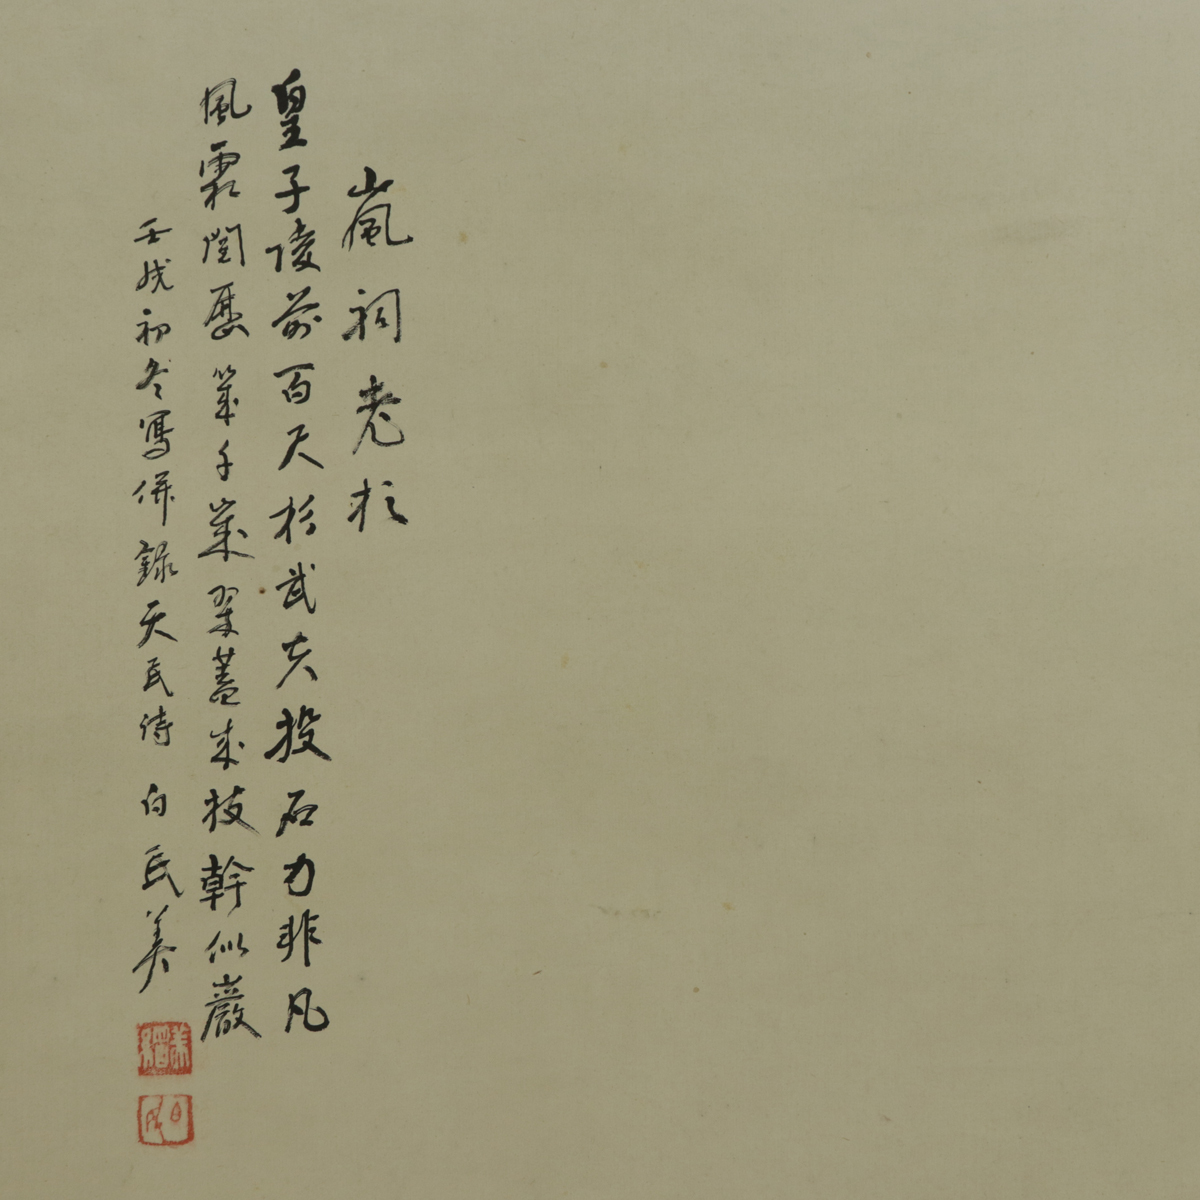 嵐祠老杉
皇子陵前百尺杉武夫投石力非凡
風霜閲歴幾千歳翠蓋成枝幹似巖
壬戌初冬寫併録天民詩 白民美